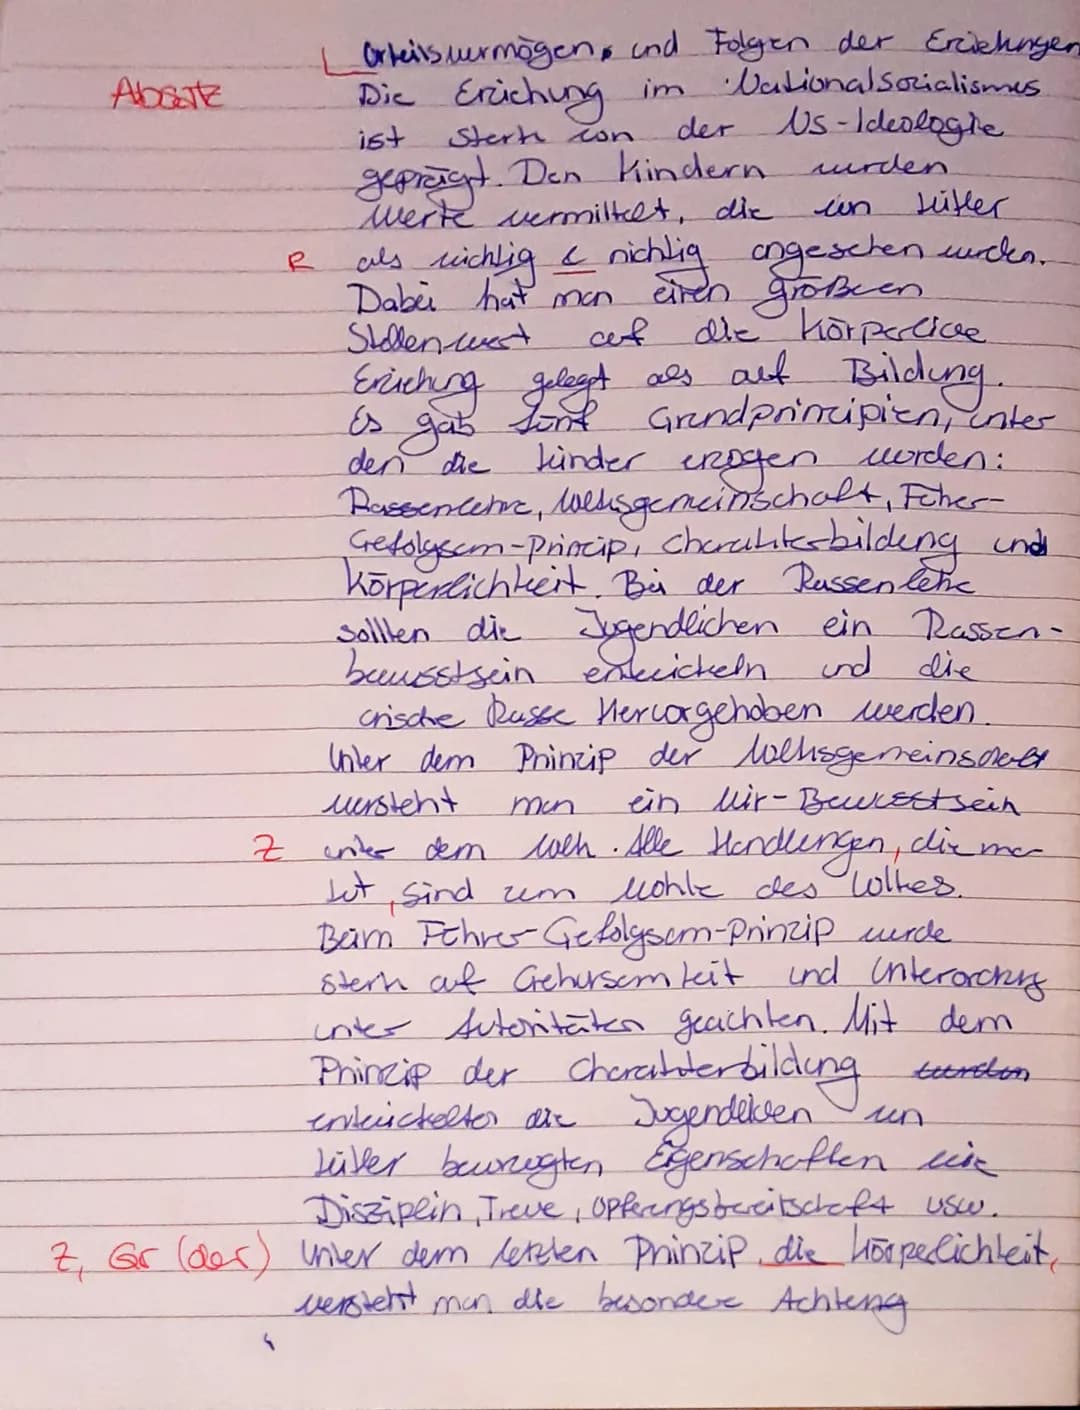 Urteilsvermögen, und Folgen der Erziehungen
Absatz Die Erziehung im Nationalsozialismus
ist stark von der NS-Ideologie
geprägt. Den Kindern wurden
Werte vermittelt, die von Hitler
R als wichtig & richtig angesehen wurden.
Dabei hat man einen größeren
Stellenwert auf die körperliche
Erziehung gelegt als auf Bildung.
Es gab fünf Grundprinzipien, unter
den die Kinder erzogen worden:
Rassenlehre, Volksgemeinschaft, Führer-
Gefolgsam-Prinzip, Charakterbildung und
Körperlichkeit. Bei der Rassenlehre
sollten die Jugendlichen ein Rassen-
bewusstsein entwickeln und die
arische Rasse Hervorgehoben werden.
Unter dem Prinzip der Volksgemeinschaft
versteht man ein Wir-Bewusstsein
Z unter dem Volk. Alle Handlungen, die man
tut, sind zum Wohle des Volkes.
Beim Führer-Gefolgsam-Prinzip wurde
stark auf Gehorsamkeit und Unterordnung
unter Autoritäten geachten. Mit dem
Prinzip der Charakterbildung wurden
entwickelten die Jugendlichen von
Hitler bevorzugten Eigenschaften wie
Disziplin, Treue, Opferungsbereitschaft usw.
Z, Gr (der) Unter dem letzten Prinzip, die Körperlichkeit,
versteht man die besondere Achtung